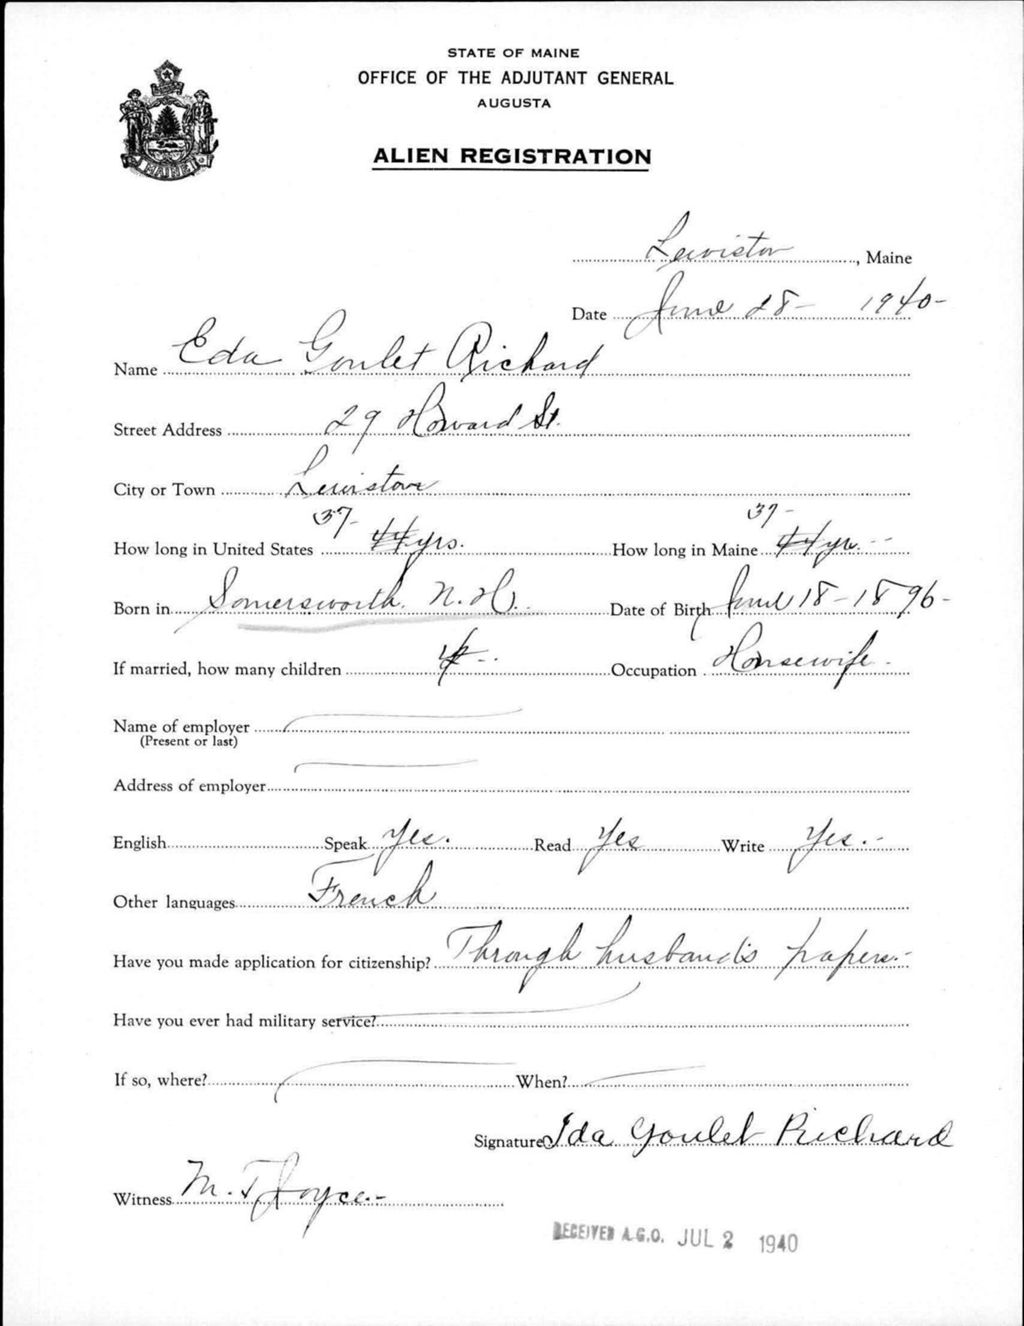 STATE OF MAINE
OFFICE OF THE ADJUTANT GENERAL
AUGUSTA
ALIEN REGISTRATION
MAINE
Lewiston, Maine
Date June 28- 1940-
Name Eda Goulet Richard
Street Address 29 Howard St.
City or Town Lewiston
37- 37-
How long in United States 44 yrs. How long in Maine 44 yr. -
Born in Somersworth. N.H. Date of Birth June 18-1896-
If married, how many children 4 - Occupation Housewife -
Name of employer
(Present or last)
Address of employer
English Speak Yes. Read Yes Write Yes. -
Other languages French
Have you made application for citizenship? Through husband's papers. -
Have you ever had military service?
If so, where? When?
Signature Ida Goulet Richard
Witness M. T. Joyce. -
RECEIVED A.G.O. JUL 2 1940